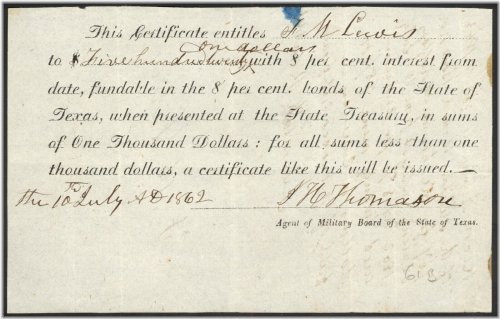 This Certificate entitles J M Lewis
one dollars
to $ Five hundred twenty with 8 per cent. interest from
date, fundable in the 8 per cent. bonds of the State of
Texas, when presented at the State Treasury, in sums
of One Thousand Dollars: for all sums less than one
thousand dollars, a certificate like this will be issued.—
the 10th July AD 1862 J H Thomason
Agent of Military Board of the State of Texas.
61B